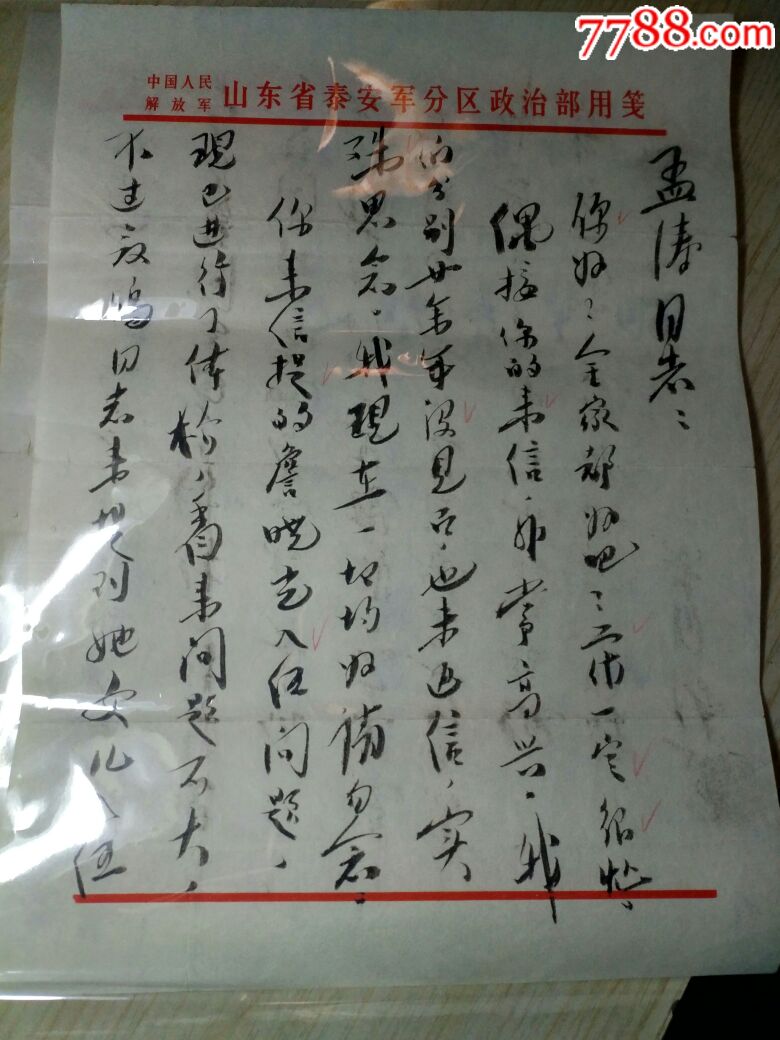 7788.com
中国人民
解放军
山东省泰安军分区政治部用笺
孟涛同志:
你好!全家都好吧!工作一定很忙!
偶接你的来信,非常高兴,我
们分别廿余年没见面,也未通信,实
殊思念。我现在一切均好请勿念!
你来信提的詹晓光入伍问题,
现已进行了体检,看来问题不大,
不过 同志未提到她女儿入伍